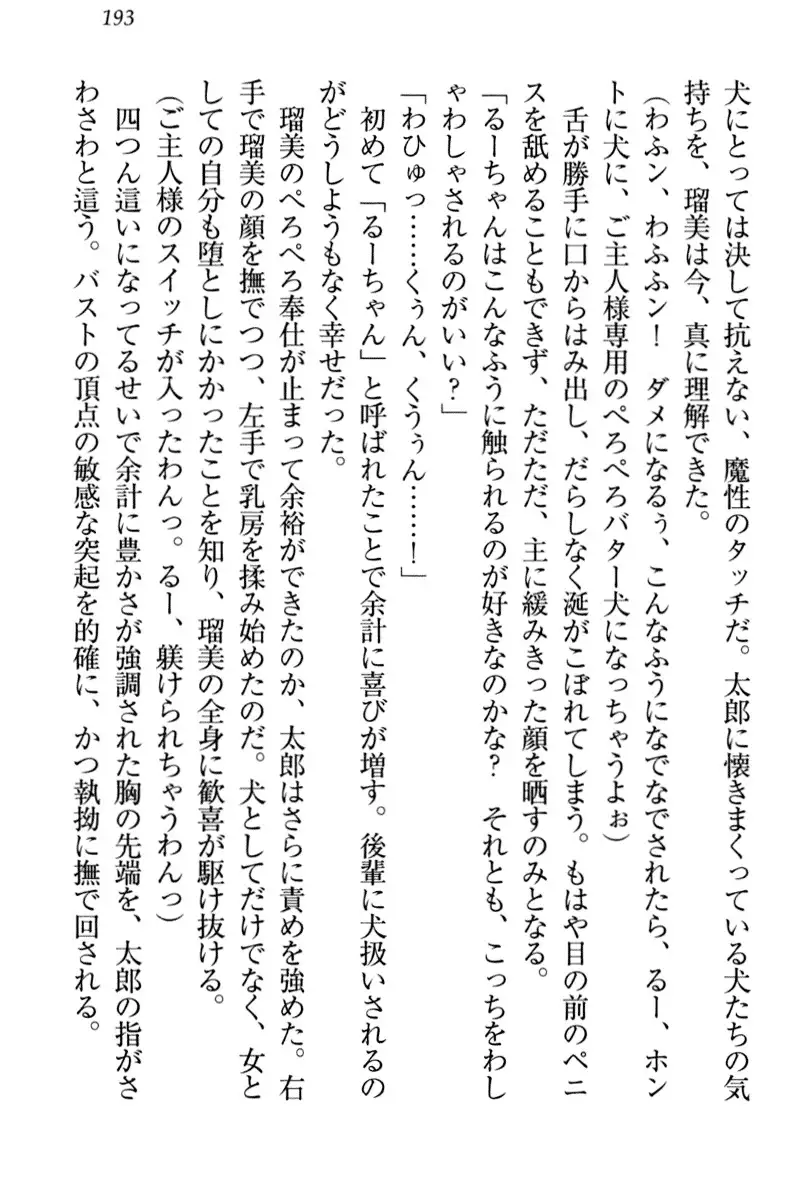 193
犬にとっては決して抗えない、魔性のタッチだ。太郎に懐きまくっている犬たちの気
持ちを、瑠美は今、真に理解できた。
(わふン、わふふン!　ダメになるぅ、こんなふうになでなでされたら、るー、ホン
トに犬に、ご主人様専用のぺろぺろバター犬になっちゃうよぉ)
　舌が勝手に口からはみ出し、だらしなく涎がこぼれてしまう。もはや目の前のペニ
スを舐めることもできず、ただただ、主に緩みきった顔を晒すのみとなる。
「るーちゃんはこんなふうに触られるのが好きなのかな?　それとも、こっちをわし
ゃわしゃされるのがいい?」
「わひゅっ……くぅん、くうぅん……!」
　初めて「るーちゃん」と呼ばれたことで余計に喜びが増す。後輩に犬扱いされるの
がどうしようもなく幸せだった。
　瑠美のぺろぺろ奉仕が止まって余裕ができたのか、太郎はさらに責めを強めた。右
手で瑠美の顔を撫でつつ、左手で乳房を揉み始めたのだ。犬としてだけでなく、女と
しての自分も堕としにかかったことを知り、瑠美の全身に歓喜が駆け抜ける。
(ご主人様のスイッチが入ったわんっ。るー、躾けられちゃうわんっ)
　四つん這いになってるせいで余計に豊かさが強調された胸の先端を、太郎の指がさ
わさわと這う。バストの頂点の敏感な突起を的確に、かつ執拗に撫で回される。